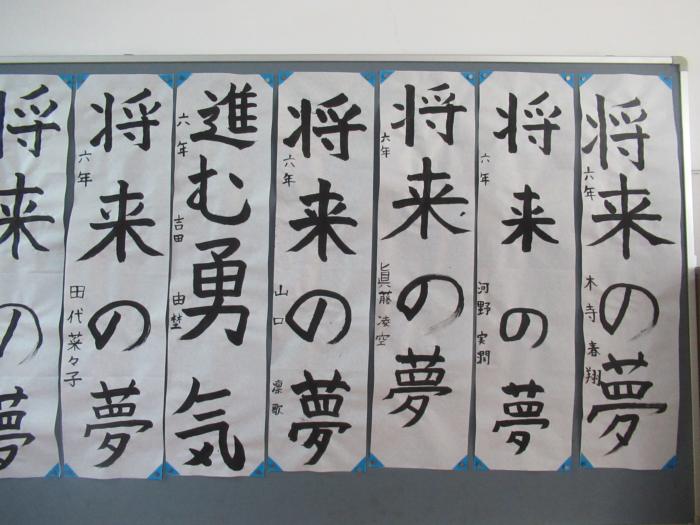 将来の夢
六年 木寺春翔
将来の夢
六年 河野実潤
将来の夢
六年 眞藤凌空
将来の夢
六年 山口凛歌
進む勇気
六年 吉田由埜
将来の夢
六年 田代菜々子
将来の夢